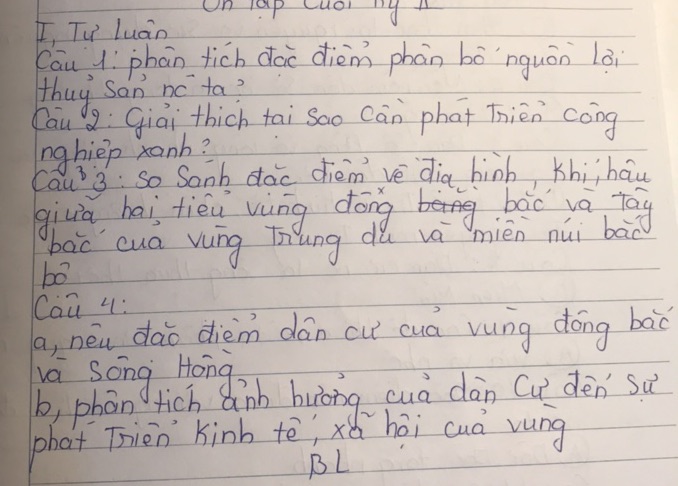 Ôn tập cuối kỳ I
I, Tự luận
Câu 1: phân tích đặc điểm phân bố nguồn lợi
thuỷ sản nc ta?
Câu 2: Giải thích tại sao cần phát triển công
nghiệp xanh?
Câu 3: So Sánh đặc điểm về địa hình, Khí hậu
giữa hai tiểu vùng đông bằng bắc và Tây
bắc của vùng Trung du và miền núi bắc
bộ
Câu 4:
a, nêu đặc điểm dân cư của vùng đồng bắc
và Sông Hồng
b, phân tích ảnh hưởng của dân Cư đến sự
phát Triển Kinh tế, xã hội của vùng
BL